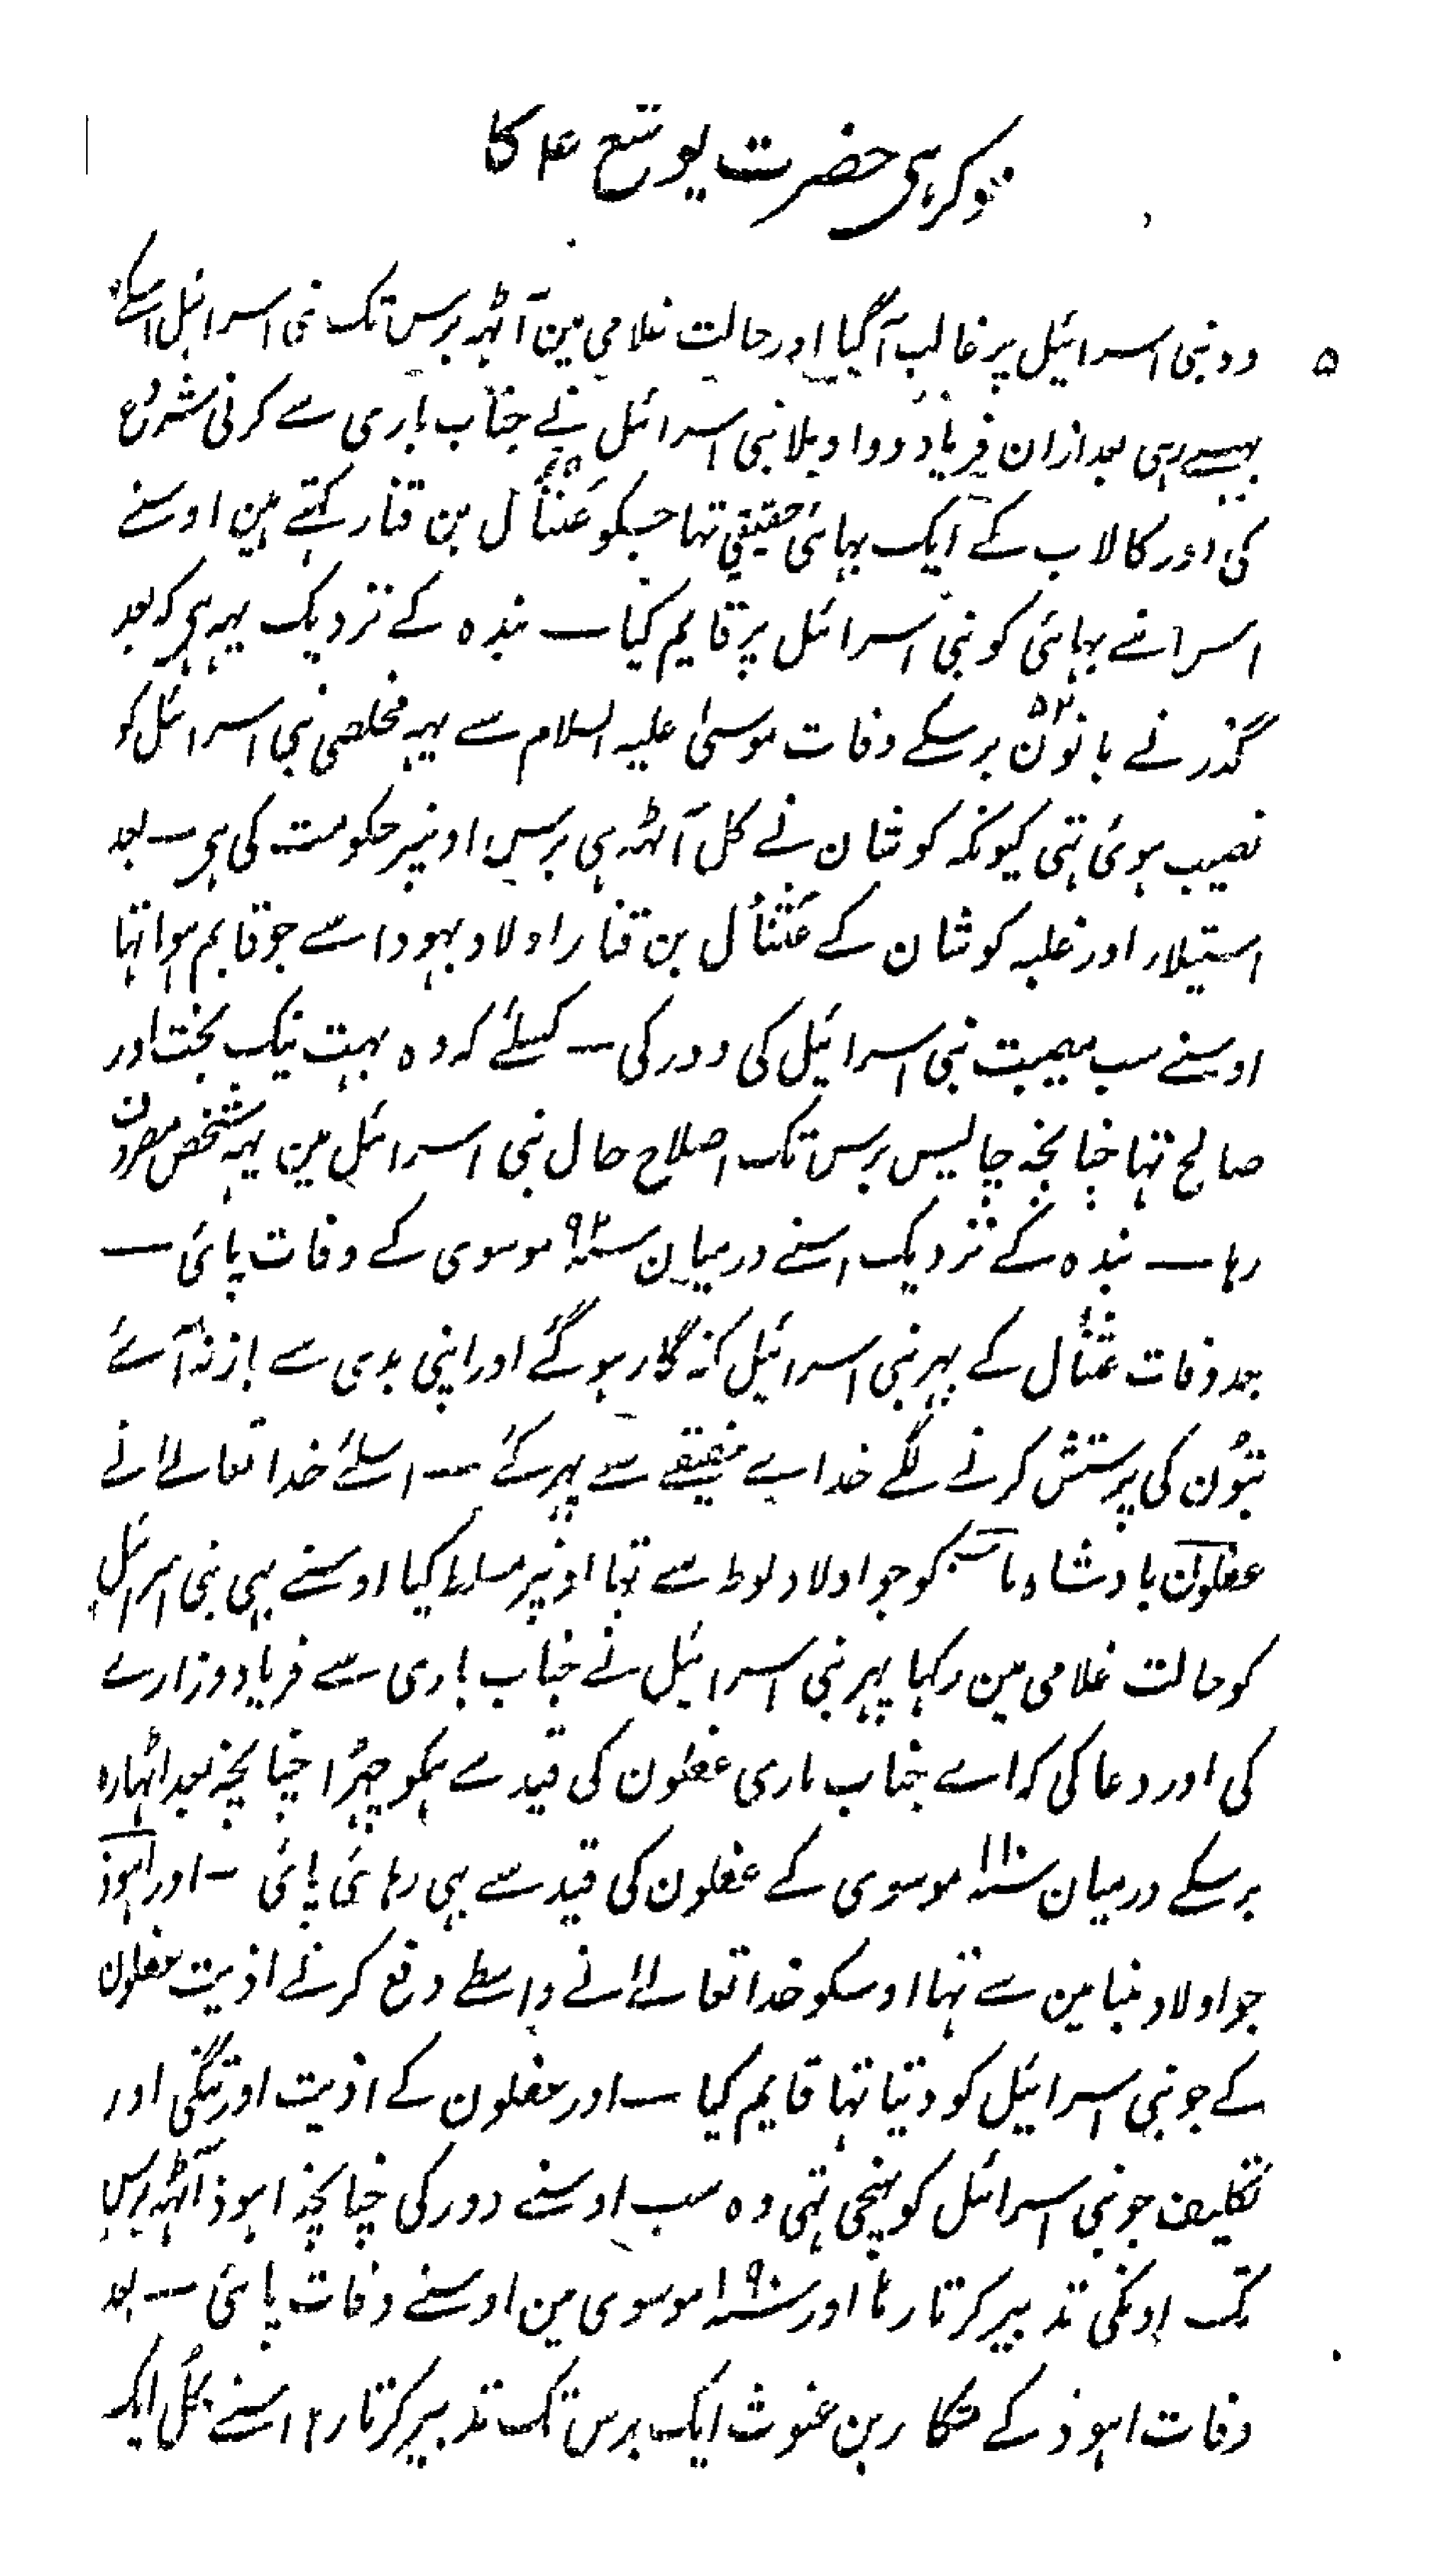 ذکر ہی حضرت یوشع ع کا
وہ بنی اسرائیل پر غالب آگیا اور حالت غلامی مین آٹہہ برس تک بنی اسرائیل اسکے
۵
پہنسے رہی بعد ازان فریاد و واویلا بنی اسرائیل نے جناب باری سے کرنی شروع
کی اور کالاب کے ایک بہائی حقیقی تہا جسکو عثنأل بن قناز کہتے ہین اوسنے
اسرانے بہائی کو بنی اسرائیل پر قایم کیا ــ بندہ کے نزدیک یہہ ہی کہ بعد
گذرنے بانون ۵۲ برسکے وفات موسیٰ علیہ السلام سے یہہ مخلصی بنی اسرائیل کو
نصیب ہوئی تہی کیونکہ کوشان نے کل آٹہہ ہی برس اونپر حکومت کی ہی ــ بعد
استیلاء اور غلبہ کوشان کے عثنأل بن قناز اولاد یہودا سے جو قایم ہوا تہا
اوسنے سب مصیبت بنی اسرائیل کی دور کی ــ کسلئے کہ وہ بہت نیک بخت اور
صالح تہا چنانچہ چالیس برس تک اصلاح حال بنی اسرائیل مین یہہ شخص مصروف
رہا ــ بندہ کے نزدیک اسنے درمیان سنہ ۹۲ موسوی کے وفات پائی ــ
بعد وفات عثنأل کے پہر بنی اسرائیل گنہ گار ہوگئے اور اپنی بدی سے باز نہ آئے
بتون کی پرستش کرنے لگے خداے حقیقے سے پہر گئے ــ اسلئے خدا تعالےٰ نے
عغلون بادشاہ مآب کو جو اولاد لوط سے تہا اونپر مسلط کیا اوسنے بہی بنی اسرائیل
کو حالت غلامی مین رکہا پہر بنی اسرائیل نے جناب باری سے فریاد و زارے
کی اور دعا کی کہ اے جناب باری عغلون کی قید سے ہمکو چہڑا چنانچہ بعد اٹہارہ
برسکے درمیان سنہ ۱۱۰ موسوی کے عغلون کی قید سے بہی رہائی پائی ــ اور اہوذ
جو اولاد بنیامین سے تہا اوسکو خدا تعالےٰ نے واسطے دفع کرنے اذیت عغلون
کے جو بنی اسرائیل کو دیتا تہا قایم کیا ــ اور عغلون کے اذیت اور تنگی اور
تکلیف جو بنی اسرائیل کو پہنچی تہی وہ سب اوسنے دور کی چنانچہ اہوذ آٹہہ برس
تک اونکی تدبیر کرتا رہا اور سنہ ۱۹۰ موسوی مین اوسنے وفات پائی ــ بعد
وفات اہوذ کے شمکار بن عنوث ایک برس تک تدبیر کرتا رہا اسنے کل ایک